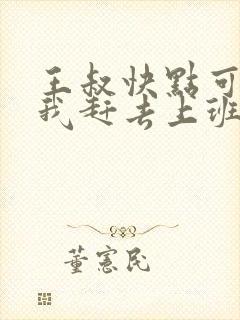 王叔快點可
我赶去上班
董憲民